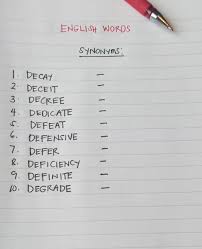 ENGLISH WORDS
SYNONYMS:
1. DECAY –
2. DECEIT –
3. DECREE –
4. DEDICATE –
5. DEFEAT –
6. DEFENSIVE –
7. DEFER –
8. DEFICIENCY –
9. DEFINITE –
10. DEGRADE –